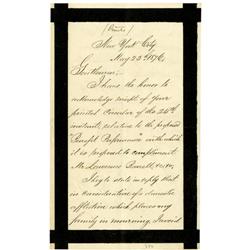 (Private)
New York City
May 23d 1876
Gentlemen;
I have the honor to
acknowledge receipt of your
printed Circular of the 20th
instant, relative to the proposed
"Benefit Performance" with which
it is proposed to compliment
Mr Lawrence Barrett,
I beg to state in reply that
in consideration of a domestic
affliction which places my
family in mourning, I avoid